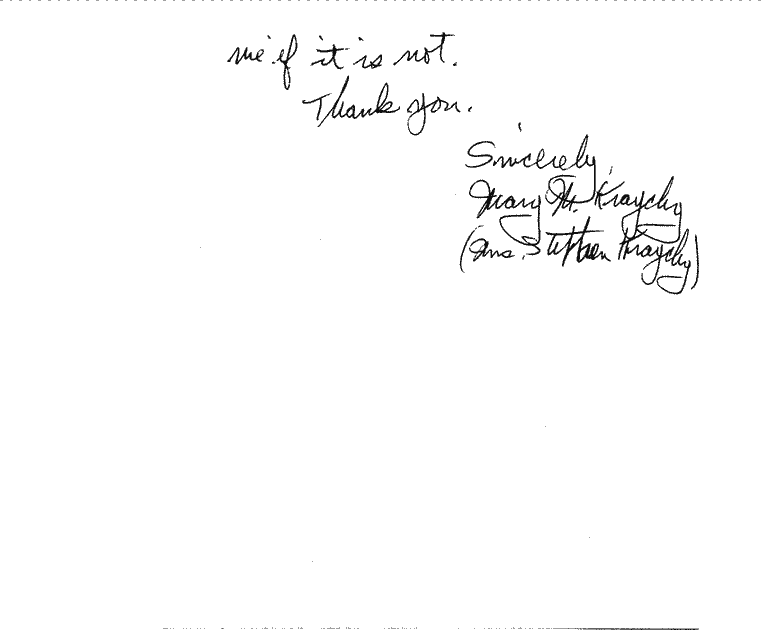 me if it is not.
Thank you.
Sincerely,
Mary M. Kraychy
(Mrs. Stephen Kraychy)